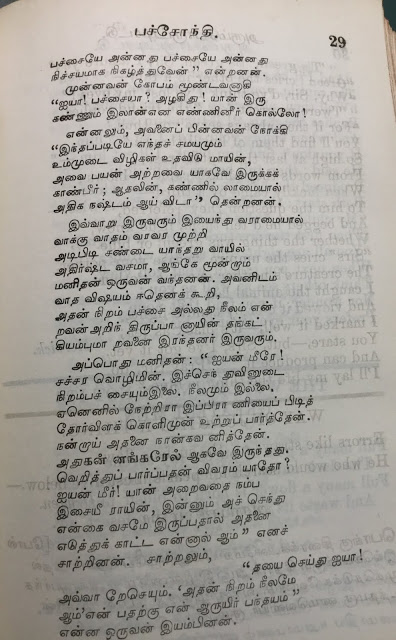 பச்சோந்தி.
29
பச்சையே அன்னது பச்சையே அன்னது
நிச்சயமாக நிகழ்த்துவேன்” என்றனன்.
முன்னவன் கோபம் மூண்டவனாகி
“ஐயா! பச்சையா? அழகிது! யான் இரு
கண்ணும் இலான்என எண்ணினீர் கொல்லோ!
என்னலும், அவனைப் பின்னவன் நோக்கி
“இந்தப்படியே எந்தச் சமயமும்
உம்முடை விழிகள் உதவிடு மாயின்,
அவை பயன் அற்றவை யாகவே இருக்கக்
காண்பீர்; ஆதலின், கண்ணில் லாமையால்
அதிக நஷ்டம் ஆய் விடா” தென்றனன்.
இவ்வாறு இருவரும் இயைந்து வராமையால்
வாக்கு வாதம் வாவர முற்றி
அடிபிடி சண்டை யாந்தறு வாயில்
அதிர்ஷ்ட வசமா, ஆங்கே மூன்றாம்
மனிதன் ஒருவன் வந்தனன். அவனிடம்
வாத விஷயம் ஈதெனக் கூறி,
அதன் நிறம் பச்சை அல்லது நீலம் என்
றவன்அறிந் திருப்பா னாயின் தங்கட்
கியம்புமா றவனை இரந்தனர் இருவரும்.
அப்பொது மனிதன்: “ஐயன் மீரே!
சச்சர வொழிமின். இச்செந் துவினுடை
நிறம்பச் சையும்இலை. நீலமும் இல்லை.
ஏனெனில் நேற்றிரா இப்பிரா ணியைப் பிடித்
தோர்விளக் கொளிமுன் உற்றுப் பார்த்தேன்.
நன்றாய் அதனை நான்கவ னித்தேன்.
அதுகன் னங்கரேல் ஆகவே இருந்தது.
வெறித்துப் பார்ப்பதன் விவரம் யாதோ?
ஐயன் மீர்! யான் அறைவதை நம்ப
இசையீ ராயின், இன்னும் அச் செந்து
என்கை வசமே இருப்பதால் அதனை
எடுத்துக் காட்ட என்னால் ஆம்” எனச்
சாற்றினன். சாற்றலும்,
“தயை செய்து ஐயா!
அவ்வா றேசெயும். ‘அதன் நிறம் நீலமே
ஆம்’என் பதற்கு என் ஆருயிர் பந்தயம்”
என்ன ஒருவன் இயம்பினன்.